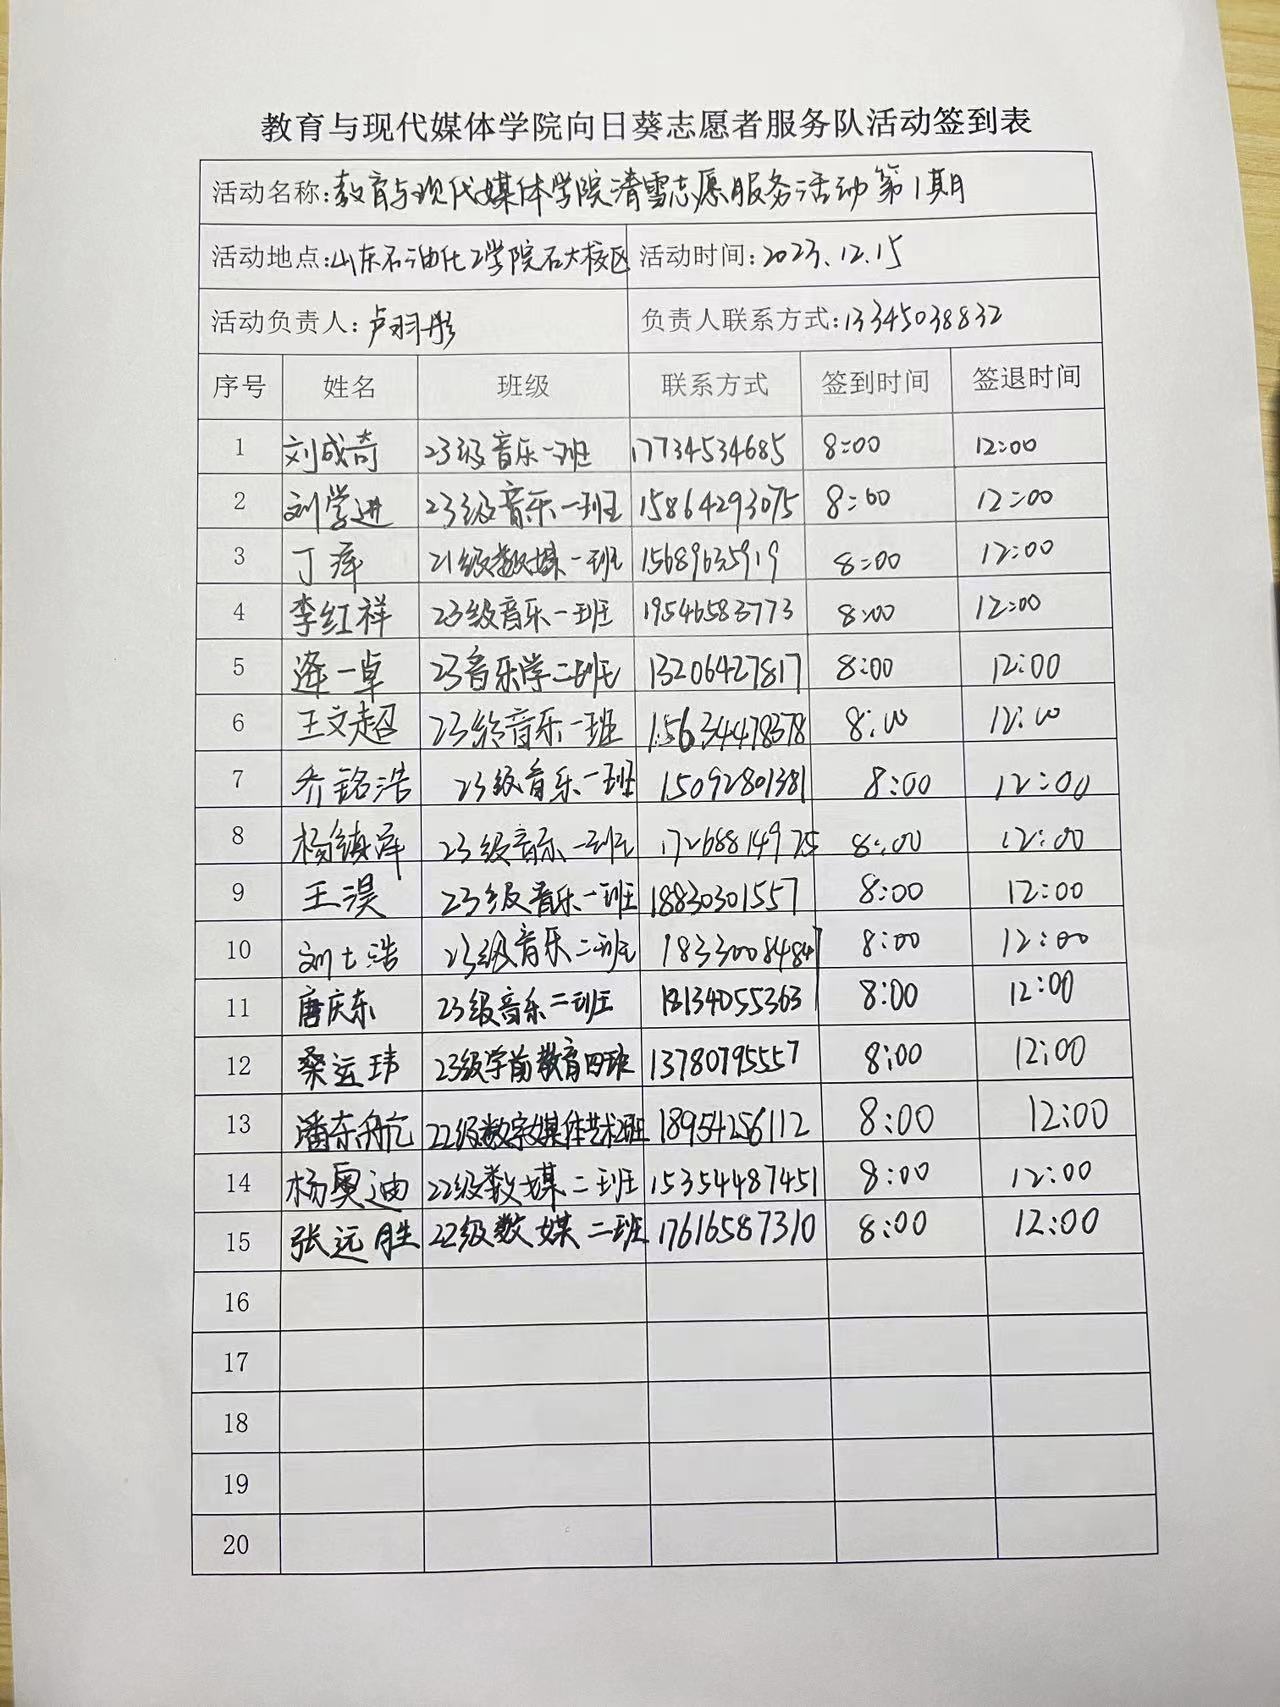 教育与现代媒体学院向日葵志愿者服务队活动签到表
活动名称:教育与现代媒体学院清雪志愿服务活动第1期
活动地点:山东石油化工学院石大校区 活动时间:2023.12.15
活动负责人:卢羽彤 负责人联系方式:13345038832
序号 姓名 班级 联系方式 签到时间 签退时间
1 刘成奇 23级音乐一班 17734534685 8:00 12:00
2 刘学进 23级音乐一班 15864293075 8:00 12:00
3 丁 21级数媒一班 15689635919 8:00 12:00
4 李红祥 23级音乐一班 19546583773 8:00 12:00
5 逄一卓 23音乐学二班 13206427817 8:00 12:00
6 王文超 23级音乐一班 15634478378 8:00 12:00
7 乔铭浩 23级音乐一班 15092801381 8:00 12:00
8 杨镇泽 23级音乐一班 17268814975 8:00 12:00
9 王淏 23级音乐一班 18830301557 8:00 12:00
10 刘士浩 23级音乐二班 18330084847 8:00 12:00
11 唐庆东 23级音乐二班 18134055363 8:00 12:00
12 桑运玮 23级学前教育四班 13780795557 8:00 12:00
13 潘东航 22级数字媒体艺术2班 18954256112 8:00 12:00
14 杨奥迪 22级数媒二班 15354487451 8:00 12:00
15 张远胜 22级数媒二班 17616587310 8:00 12:00
16
17
18
19
20